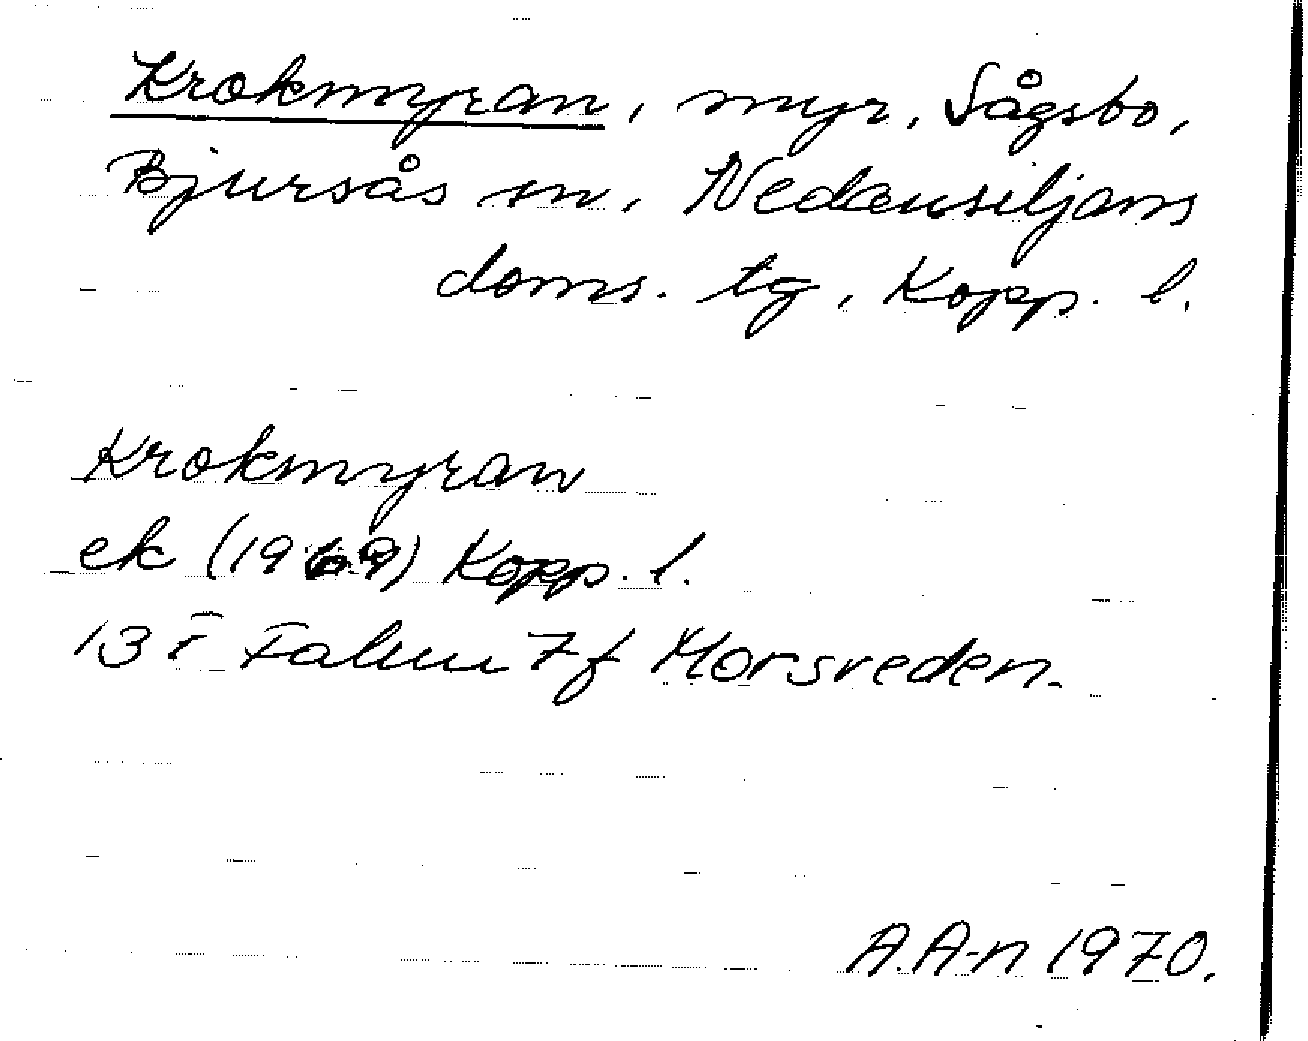 Krokmyran, myr, Sågsbo,
Bjursås sn, Nedansiljans
doms. tg, Kopp. l.
Krokmyran
ek (1969) Kopp. l.
13 F Falun 7 f Morsveden.
A.A-n 1970.